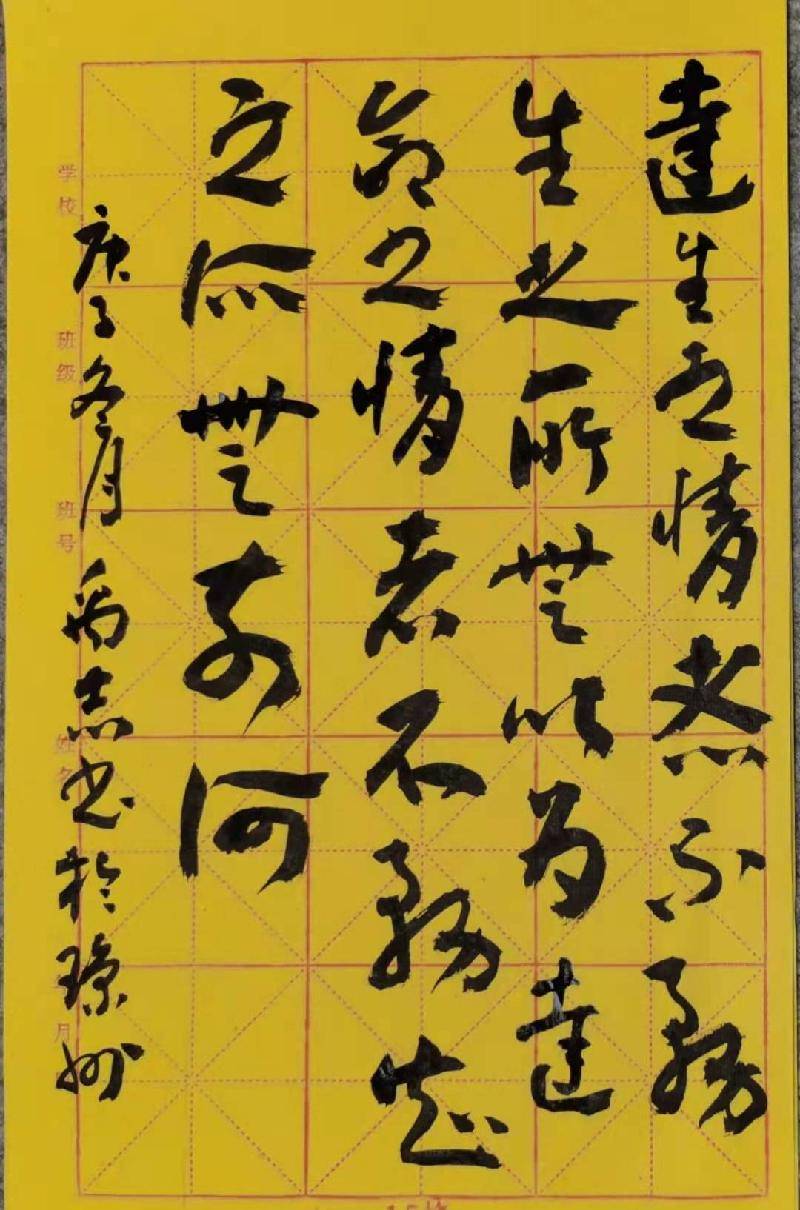 達生之情者不務
生之所無以为達
命之情者不務知
之所無奈何
庚子冬月禹志书於琼州
学校
班级
班号
姓名
月